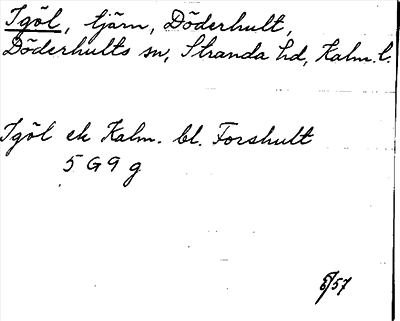 Igöl, tjärn, Döderhult,
Döderhults sn, Stranda hd, Kalm. l.
Igöl ek Kalm. bl. Forshult
5 G 9 g
/57